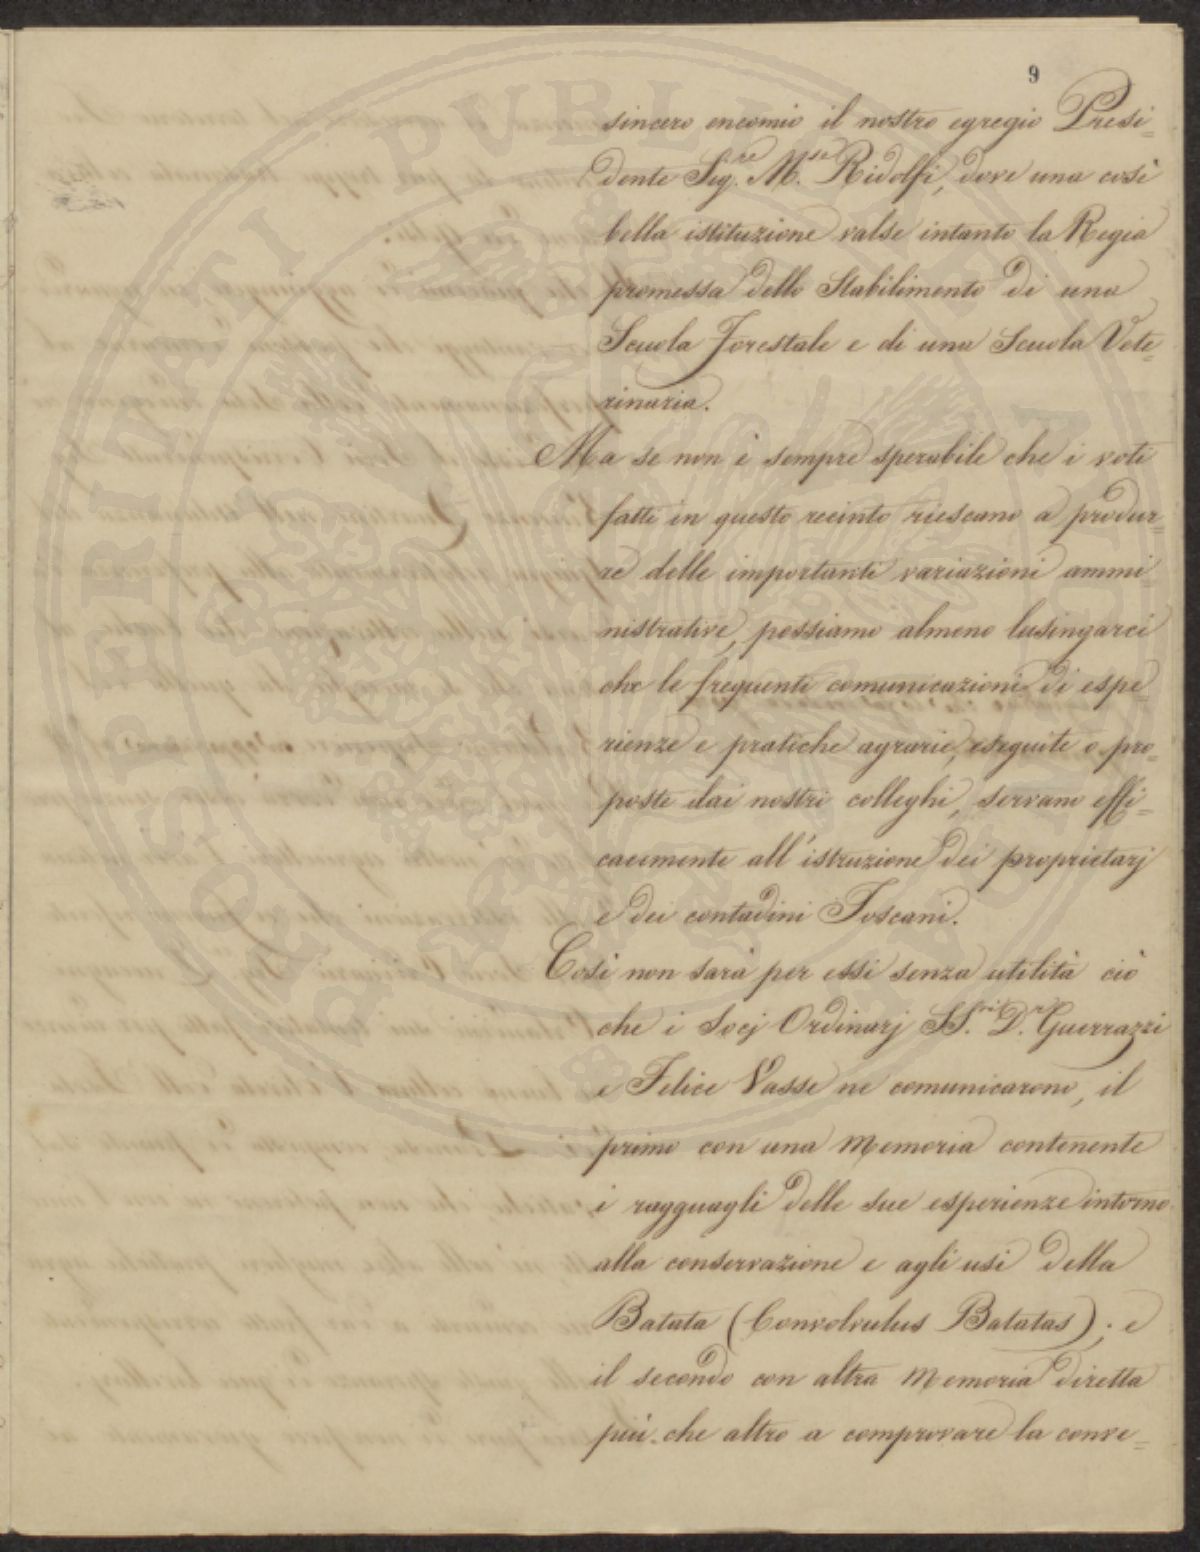 9
sincero encomio il nostro egregio Presi=
dente Sig.re M.se Ridolfi, dove una così
bella istituzione valse intanto la Regia
promessa dello Stabilimento di una
Scuola Forestale e di una Scuola Vete=
rinaria.
Ma se non è sempre sperabile che i voti
fatti in questo recinto riescano a produr=
re delle importanti variazioni ammi
nistrative, possiamo almeno lusingarci
che le frequenti comunicazioni di espe=
rienze e pratiche agrarie, eseguite o pro=
poste dai nostri colleghi, servano effi=
cacemente all'istruzione dei proprietarj
e dei contadini Toscani.
Così non sarà per essi senza utilità ciò
che i Socj Ordinarj SS.ri D.r Guerrazzi
e Felice Vasse ne comunicarono, il
primo con una Memoria contenente
i ragguagli delle sue esperienze intorno
alla conservazione e agli usi della
Batata (Convolvulus Batatas); e
il secondo con altra Memoria diretta
più che altro a comprovare la conve=
PROSPERITATI PUBLICAE AUGENDAE